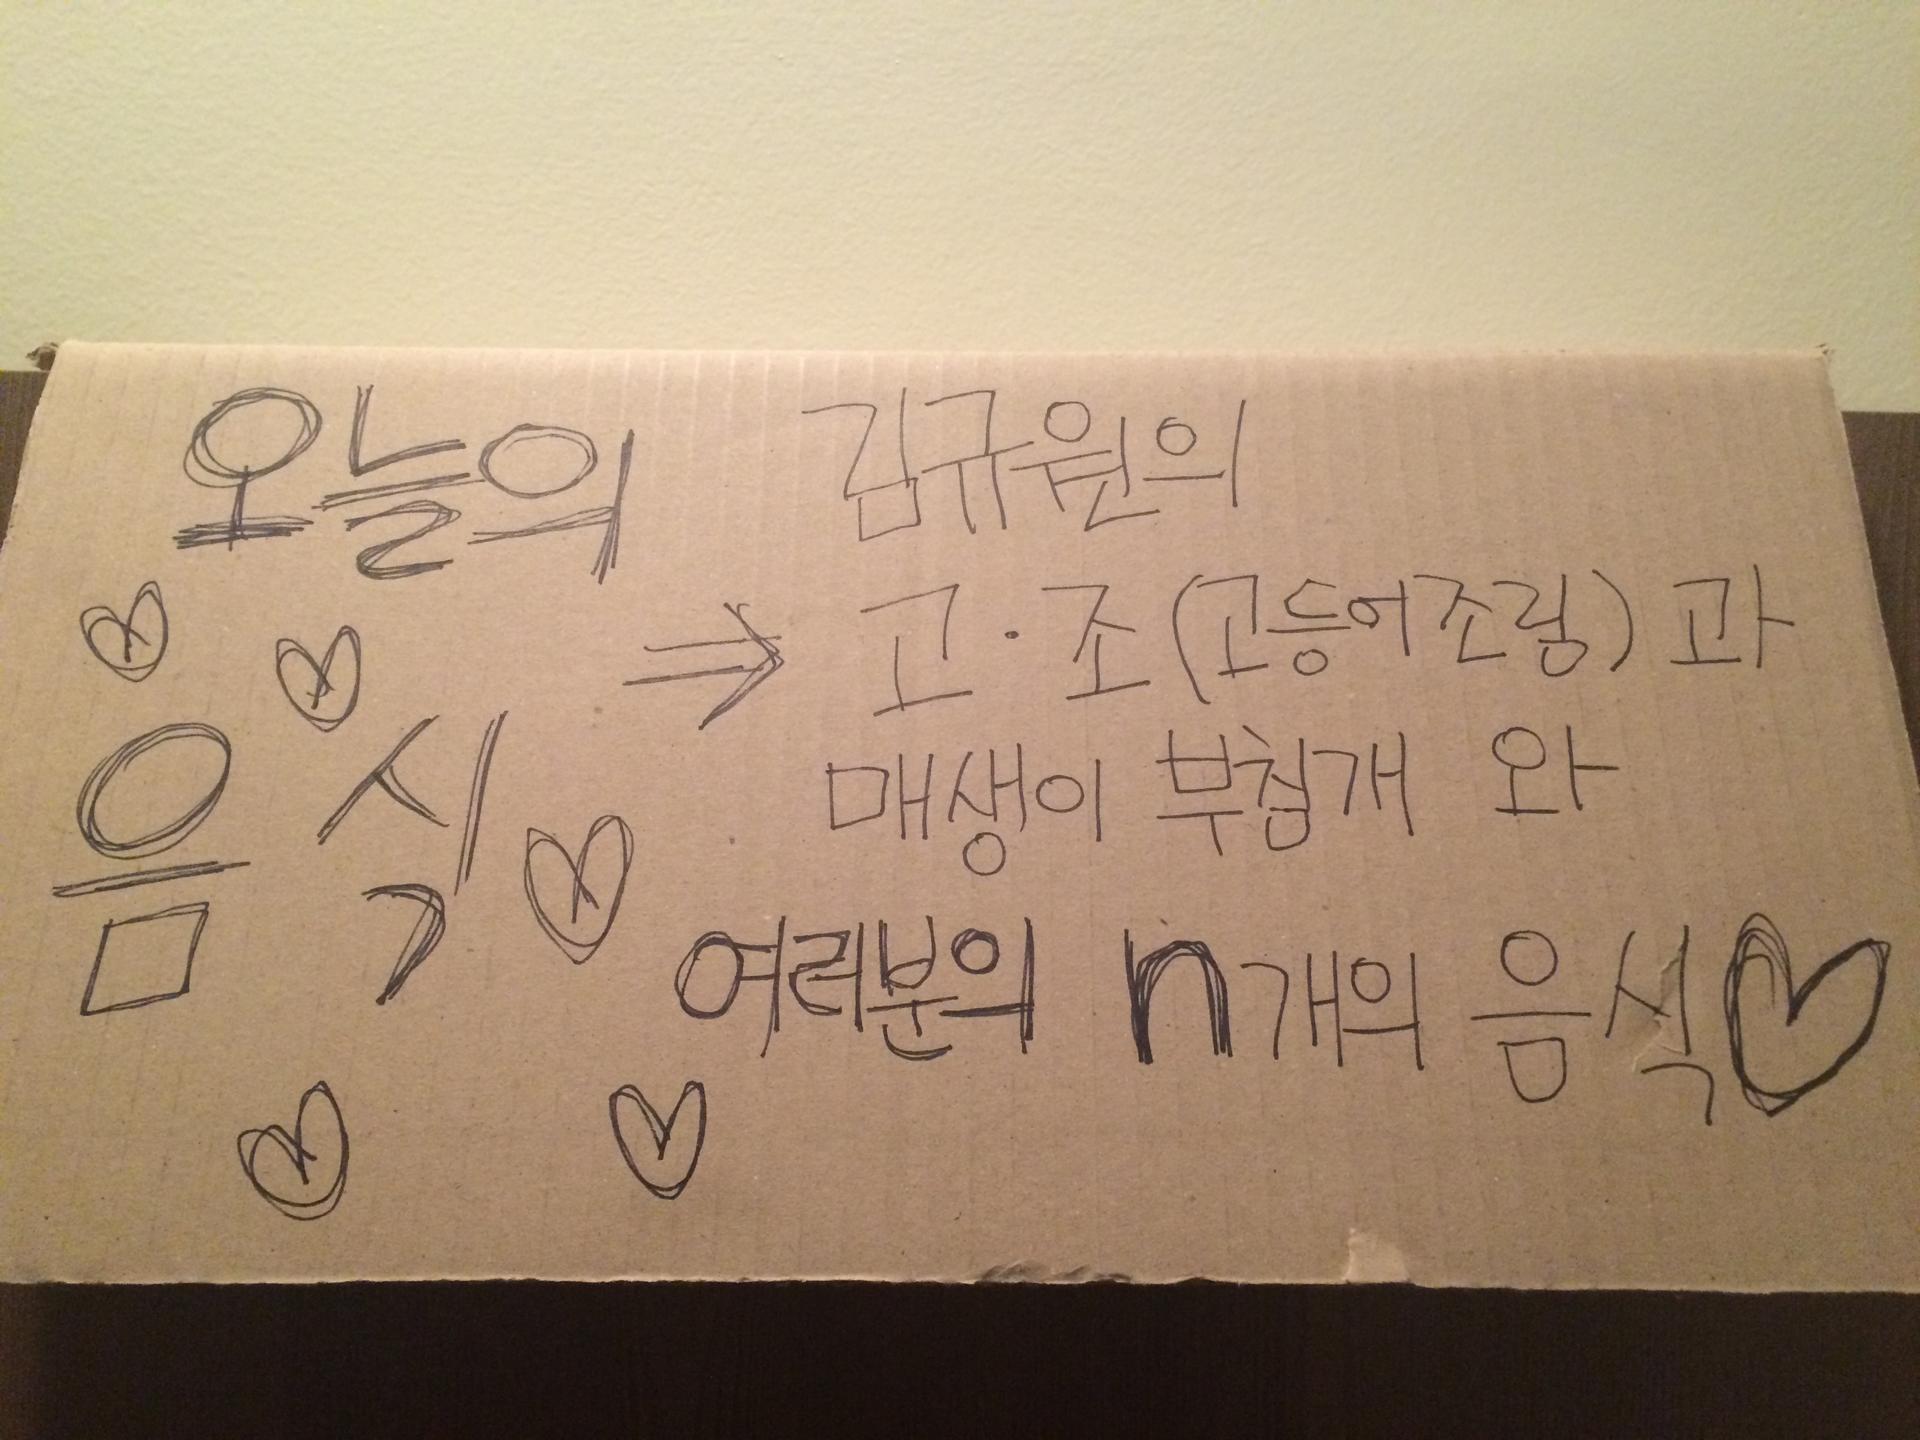 오늘의
음식
⇒
김규원의
고·조(고등어조림)과
매생이 부침개 와
여러분의 n개의 음식♡